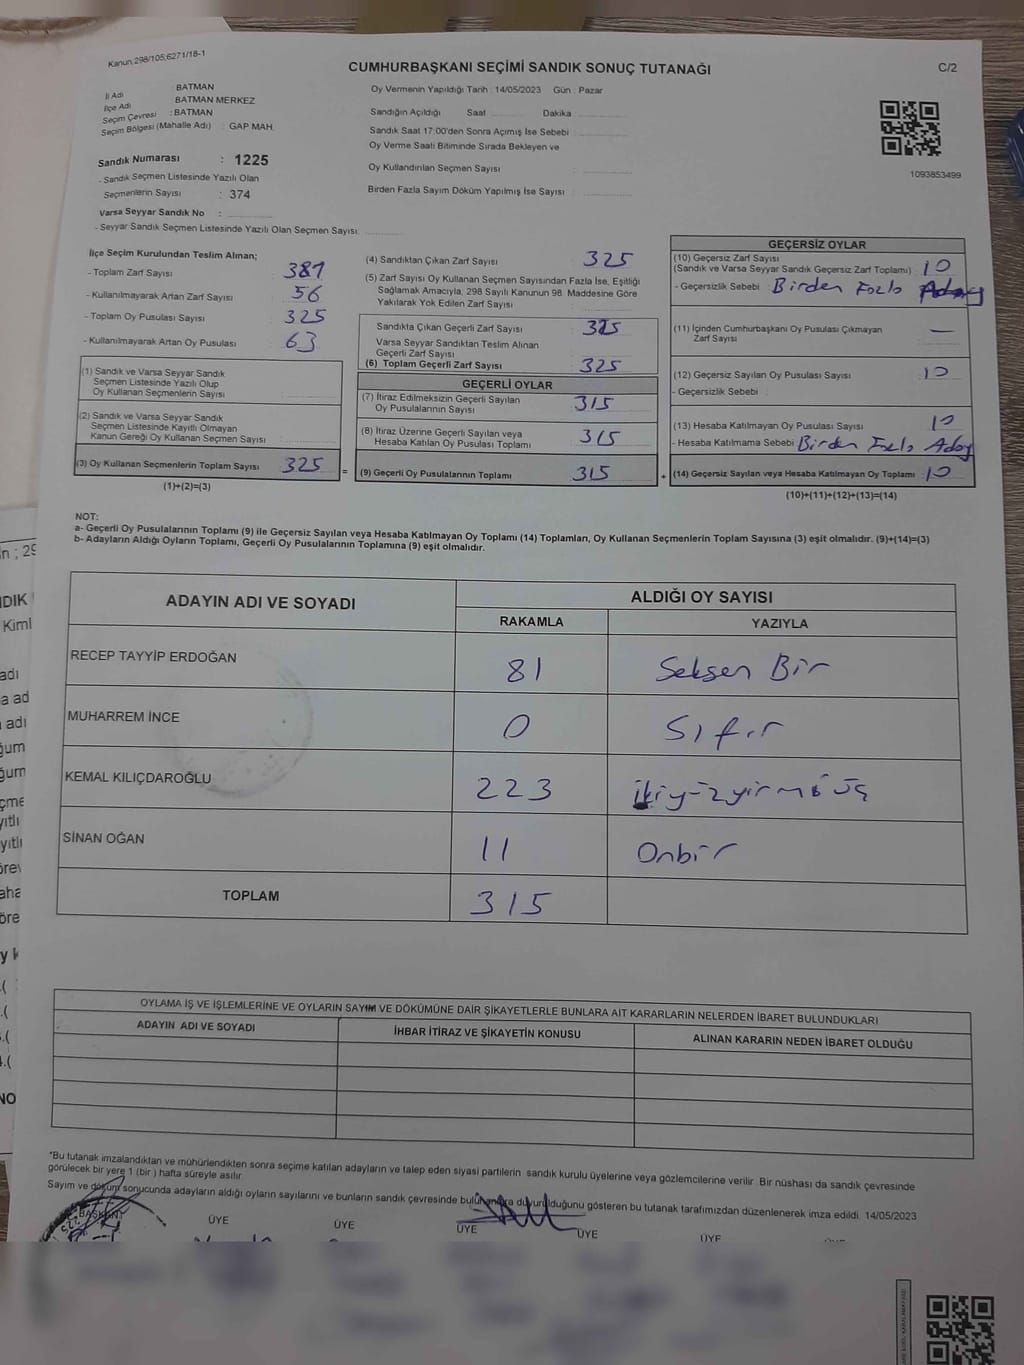 Kanun, 298/105;6271/18-1
CUMHURBAŞKANI SEÇİMİ SANDIK SONUÇ TUTANAĞI
C/2
İl Adı BATMAN
İlçe Adı BATMAN MERKEZ
Seçim Çevresi : BATMAN
Seçim Bölgesi (Mahalle Adı) : GAP MAH.
Sandık Numarası : 1225
- Sandık Seçmen Listesinde Yazılı Olan
Seçmenlerin Sayısı : 374
Varsa Seyyar Sandık No :
- Seyyar Sandık Seçmen Listesinde Yazılı Olan Seçmen Sayısı:
Oy Vermenin Yapıldığı Tarih : 14/05/2023 Gün : Pazar
Sandığın Açıldığı Saat Dakika :
Sandık Saat 17:00'den Sonra Açımış İse Sebebi :
Oy Verme Saati Bitiminde Sırada Bekleyen ve
Oy Kullandırılan Seçmen Sayısı :
Birden Fazla Sayım Döküm Yapılmış İse Sayısı :
1093853499
İlçe Seçim Kurulundan Teslim Alınan;
- Toplam Zarf Sayısı : 381
- Kullanılmayarak Artan Zarf Sayısı : 56
- Toplam Oy Pusulası Sayısı : 325
- Kullanılmayarak Artan Oy Pusulası : 63
(1) Sandık ve Varsa Seyyar Sandık
Seçmen Listesinde Yazılı Olup
Oy Kullanan Seçmenlerin Sayısı :
(2) Sandık ve Varsa Seyyar Sandık
Seçmen Listesinde Kayıtlı Olmayan
Kanun Gereği Oy Kullanan Seçmen Sayısı :
(3) Oy Kullanan Seçmenlerin Toplam Sayısı : 325
(1)+(2)=(3)
(4) Sandıktan Çıkan Zarf Sayısı : 325
(5) Zarf Sayısı Oy Kullanan Seçmen Sayısından Fazla İse, Eşitliği
Sağlamak Amacıyla, 298 Sayılı Kanunun 98. Maddesine Göre
Yakılarak Yok Edilen Zarf Sayısı :
Sandıkta Çıkan Geçerli Zarf Sayısı : 325
Varsa Seyyar Sandıktan Teslim Alınan
Geçerli Zarf Sayısı :
(6) Toplam Geçerli Zarf Sayısı : 325
GEÇERLİ OYLAR
(7) İtiraz Edilmeksizin Geçerli Sayılan
Oy Pusulalarının Sayısı : 315
(8) İtiraz Üzerine Geçerli Sayılan veya
Hesaba Katılan Oy Pusulası Toplamı : 315
= (9) Geçerli Oy Pusulalarının Toplamı : 315 +
GEÇERSİZ OYLAR
(10) Geçersiz Zarf Sayısı
(Sandık ve Varsa Seyyar Sandık Geçersiz Zarf Toplamı) : 10
- Geçersizlik Sebebi : Birden Fazla Aday
(11) İçinden Cumhurbaşkanı Oy Pusulası Çıkmayan
Zarf Sayısı : —
(12) Geçersiz Sayılan Oy Pusulası Sayısı : 10
- Geçersizlik Sebebi :
(13) Hesaba Katılmayan Oy Pusulası Sayısı : 10
- Hesaba Katılmama Sebebi : Birden Fazla Aday
(14) Geçersiz Sayılan veya Hesaba Katılmayan Oy Toplamı : 10
(10)+(11)+(12)+(13)=(14)
NOT:
a- Geçerli Oy Pusulalarının Toplamı (9) ile Geçersiz Sayılan veya Hesaba Katılmayan Oy Toplamı (14) Toplamları, Oy Kullanan Seçmenlerin Toplam Sayısına (3) eşit olmalıdır. (9)+(14)=(3)
b- Adayların Aldığı Oyların Toplamı, Geçerli Oy Pusulalarının Toplamına (9) eşit olmalıdır.
ADAYIN ADI VE SOYADI
ALDIĞI OY SAYISI
RAKAMLA YAZIYLA
RECEP TAYYİP ERDOĞAN 81 Seksen Bir
MUHARREM İNCE 0 Sıfır
KEMAL KILIÇDAROĞLU 223 ikiyüzyirmiüç
SİNAN OĞAN 11 Onbir
TOPLAM 315
OYLAMA İŞ VE İŞLEMLERİNE VE OYLARIN SAYIM VE DÖKÜMÜNE DAİR ŞİKAYETLERLE BUNLARA AİT KARARLARIN NELERDEN İBARET BULUNDUKLARI
ADAYIN ADI VE SOYADI İHBAR İTİRAZ VE ŞİKAYETİN KONUSU ALINAN KARARIN NEDEN İBARET OLDUĞU
*Bu tutanak imzalandıktan ve mühürlendikten sonra seçime katılan adayların ve talep eden siyasi partilerin sandık kurulu üyelerine veya gözlemcilerine verilir. Bir nüshası da sandık çevresinde
görülecek bir yere 1 (bir) hafta süreyle asılır.
Sayım ve döküm sonucunda adayların aldığı oyların sayılarını ve bunların sandık çevresinde bulunanlara duyurulduğunu gösteren bu tutanak tarafımızdan düzenlenerek imza edildi. 14/05/2023
BAŞKAN ÜYE ÜYE ÜYE ÜYE ÜYE